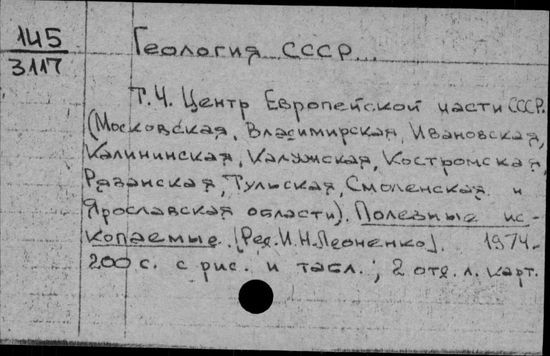 145
3117
Геология СССР...
Т.4. Центр Европейской части СССР.
(Московская, Владимирская, Ивановская,
Калининская, Калужская, Костромская,
Рязанская, Тульская, Смоленская и
Ярославская области). Полезные ис-
копаемые. [Ред. И.Н. Леоненко]. 1974.
200 с. с рис. и табл.; 2 отд. л. карт.